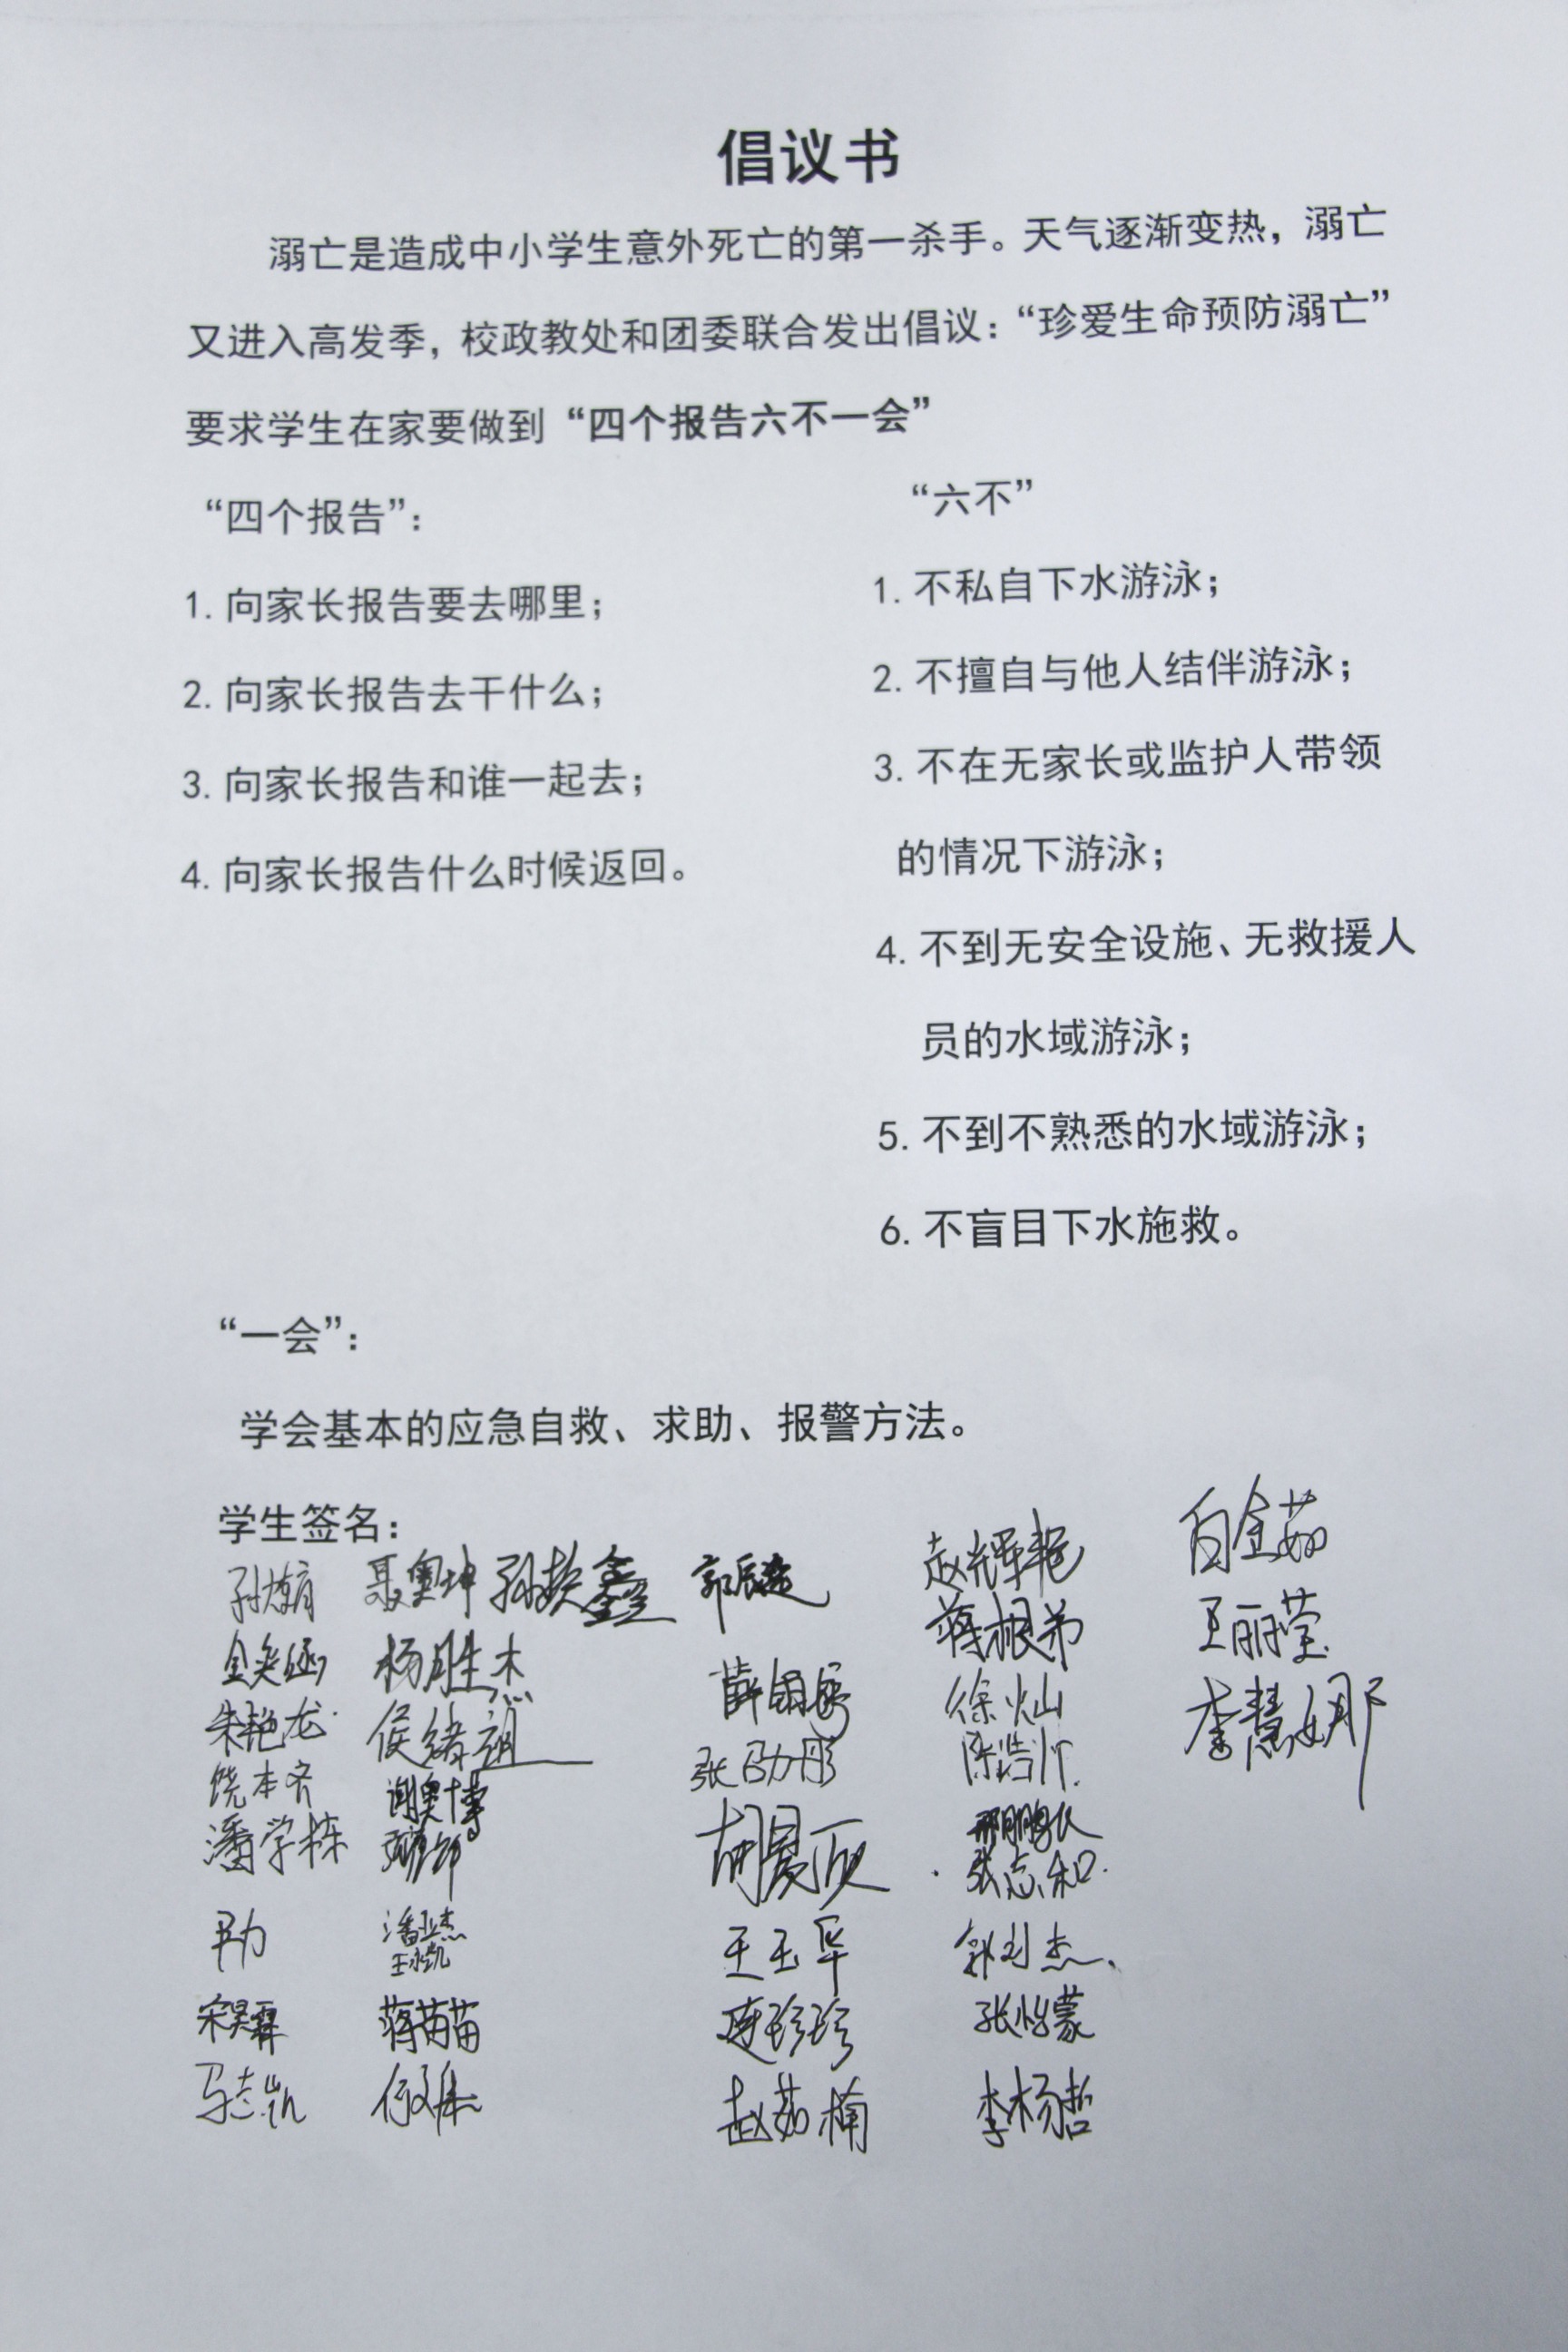 倡议书
溺亡是造成中小学生意外死亡的第一杀手。天气逐渐变热，溺亡
又进入高发季，校政教处和团委联合发出倡议：“珍爱生命预防溺亡”
要求学生在家要做到“四个报告六不一会”
“四个报告”：
1. 向家长报告要去哪里；
2. 向家长报告去干什么；
3. 向家长报告和谁一起去；
4. 向家长报告什么时候返回。
“六不”
1. 不私自下水游泳；
2. 不擅自与他人结伴游泳；
3. 不在无家长或监护人带领
的情况下游泳；
4. 不到无安全设施、无救援人
员的水域游泳；
5. 不到不熟悉的水域游泳；
6. 不盲目下水施救。
“一会”：
学会基本的应急自救、求助、报警方法。
学生签名：
聂奥坤
赵辉艳
白金茹
杨胜杰
蒋根弟
王丽莹
朱艳龙
侯绪祖
徐灿
李慧娜
饶本齐
谢奥博
张励彤
陈浩帅
潘学栋
胡晨欣
张志和
潘亚杰
王永凯
王玉华
蒋苗苗
连珍珍
张怡蒙
马志凯
赵茹楠
李杨哲